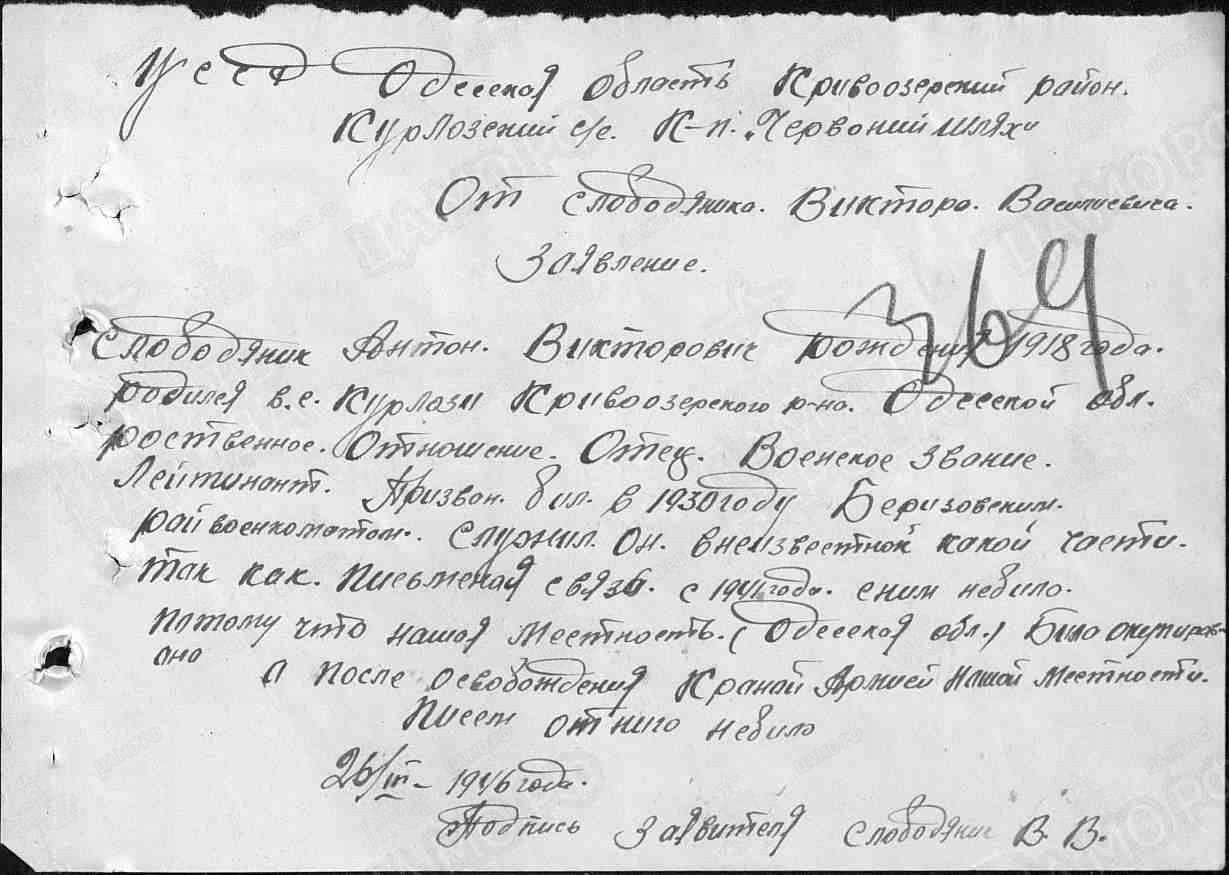 УССР Одесская область Кривоозерский район.
Курлозский с/с. К-п. "Червоний шлях"
От Слободяника. Виктора. Василиевича.
Заявление.
364
Слободяник Антон. Викторович рождения 1918 года.
родился в.с. Курлази Кривоозерского р-на. Одесской обл.
роственное. Отношение. Отец. Военское звание.
Лейтинант. Призван. бил. в 1930 году Беризовским.
райвоенкоматом. служил. он. внеизвестной какой части.
так как. писменая связь. с 1941 года. сним небило.
потому что нашая местность. (Одесская обл.) Било окупиров-
ано
А после освобождения Краной Армией нашой местности.
Писем от него небило
26/III - 1946 года.
Подпись заявителя Слободяник В. В.
ЦАМО РФ